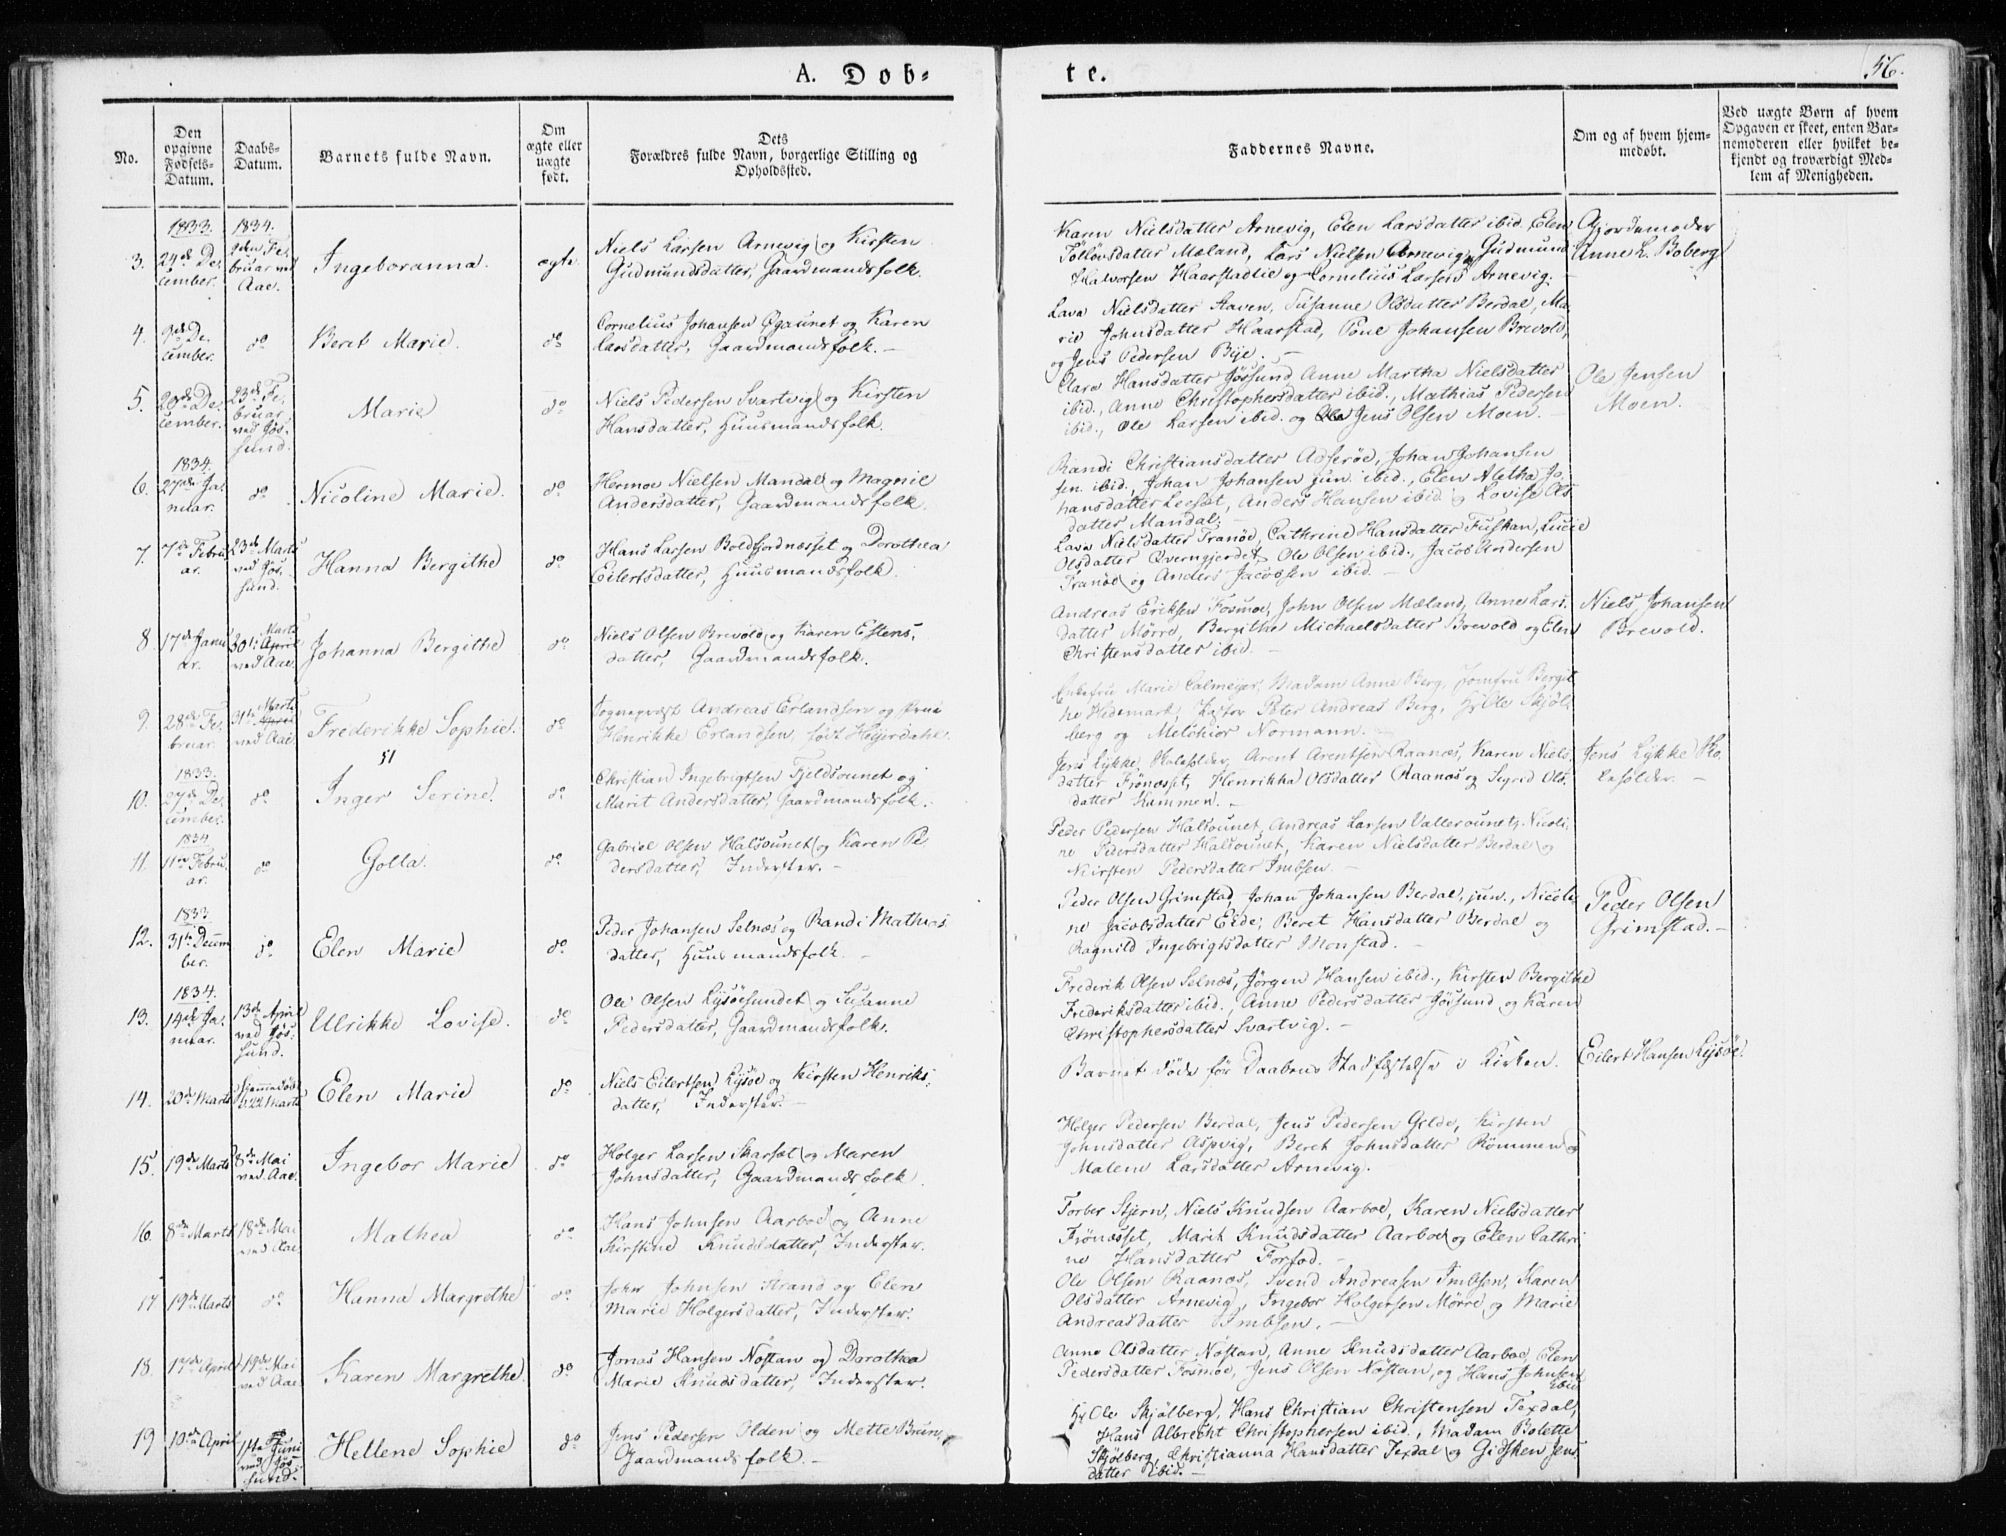 A. Døb-
te.
56.
No.
Den
opgivne
Fødsels-
Datum.
Daabs-
Datum.
Barnets fulde Navn.
Om
ægte eller
uægte
født.
Dets
Forældres fulde Navn, borgerlige Stilling og
Opholdssted.
Faddernes Navne.
Om og af hvem hjem-
medøbt.
Ved uægte Børn af hvem
Opgaven er skeet, enten Bar-
nemoderen eller hvilket be-
kjendt og troværdigt Med-
lem af Menigheden.
3.
1833.
24de De-
cember.
1834.
9den Fe-
bruar ved
Aae.
Ingeboranna.
ægte.
Niels Larsen Arnevig og Kirsten
Gudmundsdatter, Gaardmandsfolk.
Karen Nielsdatter Arnevig, Elen Larsdatter ibid. Elen
Tøløvsdatter Mæland, Lars Nielsen Arnevig, Gudmund
Halvorsen Haarstadlie og Cornelius Larsen Arnevig.
Gjordemoder
Anne L. Boberg
4.
9de De-
cember.
do
Beret Marie.
do
Cornelius Johansen Øgaunet og Karen
Larsdatter, Gaardmandsfolk. —
Lava Nielsdatter Staven, Susanne Olsdatter Berdal, Ma-
rie Johnsdatter Haarstad, Tone Johansen Brevold,
og Jens Pedersen Bye. —
5.
20de De-
cember.
23de Fe-
bruar
ved Jøs-
sund.
Marie
do
Niels Pedersen Svartvig og Kirsten
Hansdatter, Huusmandsfolk.
Clara Hansdatter Jøssund Anne Martha Nielsdatter
ibid., Anne Christophersdatter ibid., Mathias Pedersen
ibid., Ole Larsen ibid. og Ole Jens Olsen Moen. —
Ole Jensen
Moen.
6.
1834.
27de Ja-
nuar.
do
Nicoline Marie.
do
Hermoe Nielsen Mandal og Magnil
Andersdatter, Gaardmandsfolk.
Randi Christiansdatter Adserøe, Johan Johansen
sen. ibid., Johan Johansen jun. ibid., Elen Aletha Jo-
hansdatter Leeset, Anders Hansen ibid og Lovise Ols-
datter Mandal. —
7.
7de Febru-
ar.
23de Marts
ved Jøs-
sund.
Hanna Bergithe
do
Hans Larsen Boldfjordnæsset og Dorothea
Eilertsdatter, Huusmandsfolk.
Lava Nielsdatter Tranøe, Cathrine Hansdatter Fuskan, Lucie
Olsdatter Qverngjerdet, Ole Olsen ibid., Jacob Andersen
Tranøe og Anders Jacobsen ibid. —
8.
17de Janu-
ar.
30te Marts
April
ved Aae.
Johanna Bergithe
do
Niels Olsen Brevold og Karen Estens-
datter, Gaardmandsfolk.
Andreas Eriksen Fosmoe, John Olsen Mæland, Anne Lars-
datter Mørre, Bergithe Michaelsdatter Brevold og Elen
Christensdatter ibid. —
Niels Johansen
Brevold.
9.
28de Fe-
bruar.
31te Marts
April
ved Aae.
Frederikke Sophie.
do
Sognepræst Andreas Erlandsen og
Henrikke Erlandsen født Heyerdahl.
Enkefru Marie Calmeyer, Madam Anne Berg, Jomfru Bergit-
he Hedemark, Peter Andreas Berg, Hr Ole Skjøl-
berg og Melchior Normann. —
51
10.
1833.
27de De-
cember.
do
Inger Serine.
do
Christian Ingebrigtsen Fjeldsounet og
Marit Andersdatter, Gaardmandsfolk.
Jens Lykke Skoleholder, Arent Arentsen Raanæs, Karen Niels-
datter Frönæsset, Henrikka Olsdatter Raanæs og Sigrid Ols-
datter Kammen. —
Jens Lykke Sko-
leholder. —
11.
1834.
11te Febru-
ar.
do
Golla.
do
Gabriel Olsen Halsounet og Karen Pe-
dersdatter, Inderster. —
Peder Pedersen Halsounet, Andreas Larsen Vallersounet, Nicoli-
ne Pedersdatter Halsounet, Karen Nielsdatter Berdal og
Kirsten Pedersdatter Imbsen. —
12.
1833.
31te Decem-
ber.
do
Elen Marie
do
Peder Johansen Selnæs og Randi Mathias-
datter, Huusmandsfolk. —
Peder Olsen Grimstad, Johan Johansen Berdal, jun., Nicoli-
ne Jacobsdatter Eide, Beret Hansdatter Berdal og
Ragnild Ingebrigtsdatter Monstad. —
Peder Olsen
Grimstad. —
13.
1834.
14de Ja-
nuar.
13de April
ved Jøs-
sund.
Ulrikke Lovise.
do
Ole Olsen Lysöesundet og Susanne
Pedersdatter, Gaardmandsfolk.
Frederik Olsen Selnæs, Jørgen Hansen ibid., Kirsten Bergithe
Frederiksdatter ibid., Anne Pedersdatter Jøssund og Karen
Christophersdatter Svartvig. —
14.
20de Marts
Hjemmedøbt
d. 22 Marts
Elen Marie
do
Niels Eilertsen Lysöe og Kirsten Henriks-
datter, Inderster. —
Barnet døde før Daabens Stadfæstelse i Kirken.
Eilert Hansen Lysöe.
15.
19de Marts
8de Mai
ved Aae.
Ingebor Marie
do
Holger Larsen Skarsæt og Maren
Johnsdatter, Gaardmandsfolk.
Holger Pedersen Berdal, Jens Pedersen Gelde, Kirsten
Johnsdatter Aspvig, Beret Johnsdatter Römmen og
Malene Larsdatter Arnevig.
16.
8de Marts
18de Mai
ved Aae.
Mathea
do
Hans Johnsen Aarboe og Anne
Kirstine Knudsdatter, Inderster.
Torber Stjern, Niels Knudsen Aarboe, Karen Nielsdatter
Frönæsset, Marit Knudsdatter Aarboe og Elen Cathri-
ne Hansdatter Forfod. —
17
19de Marts
do
Hanna Margrethe
do
John Johnsen Strand og Elen
Marie Holgersdatter, Inderster.
Ole Olsen Raanæs, Svend Andreasen Imbsen, Karen
Olsdatter Arnevig, Ingebor Holgersen Mörre og Marie
Andreasdatter Imbsen. —
18.
17de April
19de Mai
ved Aae.
Karen Margrethe.
do
Jonas Hansen Nöstan og Dorothea
Marie Knudsdatter, Inderster.
Anne Olsdatter Nöstan, Anne Knudsdatter Aarboe, Elen
Pedersdatter Fosmoe, Jens Olsen Nöstan, og Hans Johnsen
ibid
19
10de April
1ste Juni
ved Jøs-
sund.
Hellene Sophie
do
Jens Pedersen Ilden og Mette Bruun,
Gaardmandsfolk. —
Hr Ole Skjölberg, Hans Christian Christensen Texdal,
Hans Albrecht Christophersen ibid., Madam Bolette
Skjölberg, Christianna Hansdatter Texdal og Gidsken Jens-
datter ibid. —